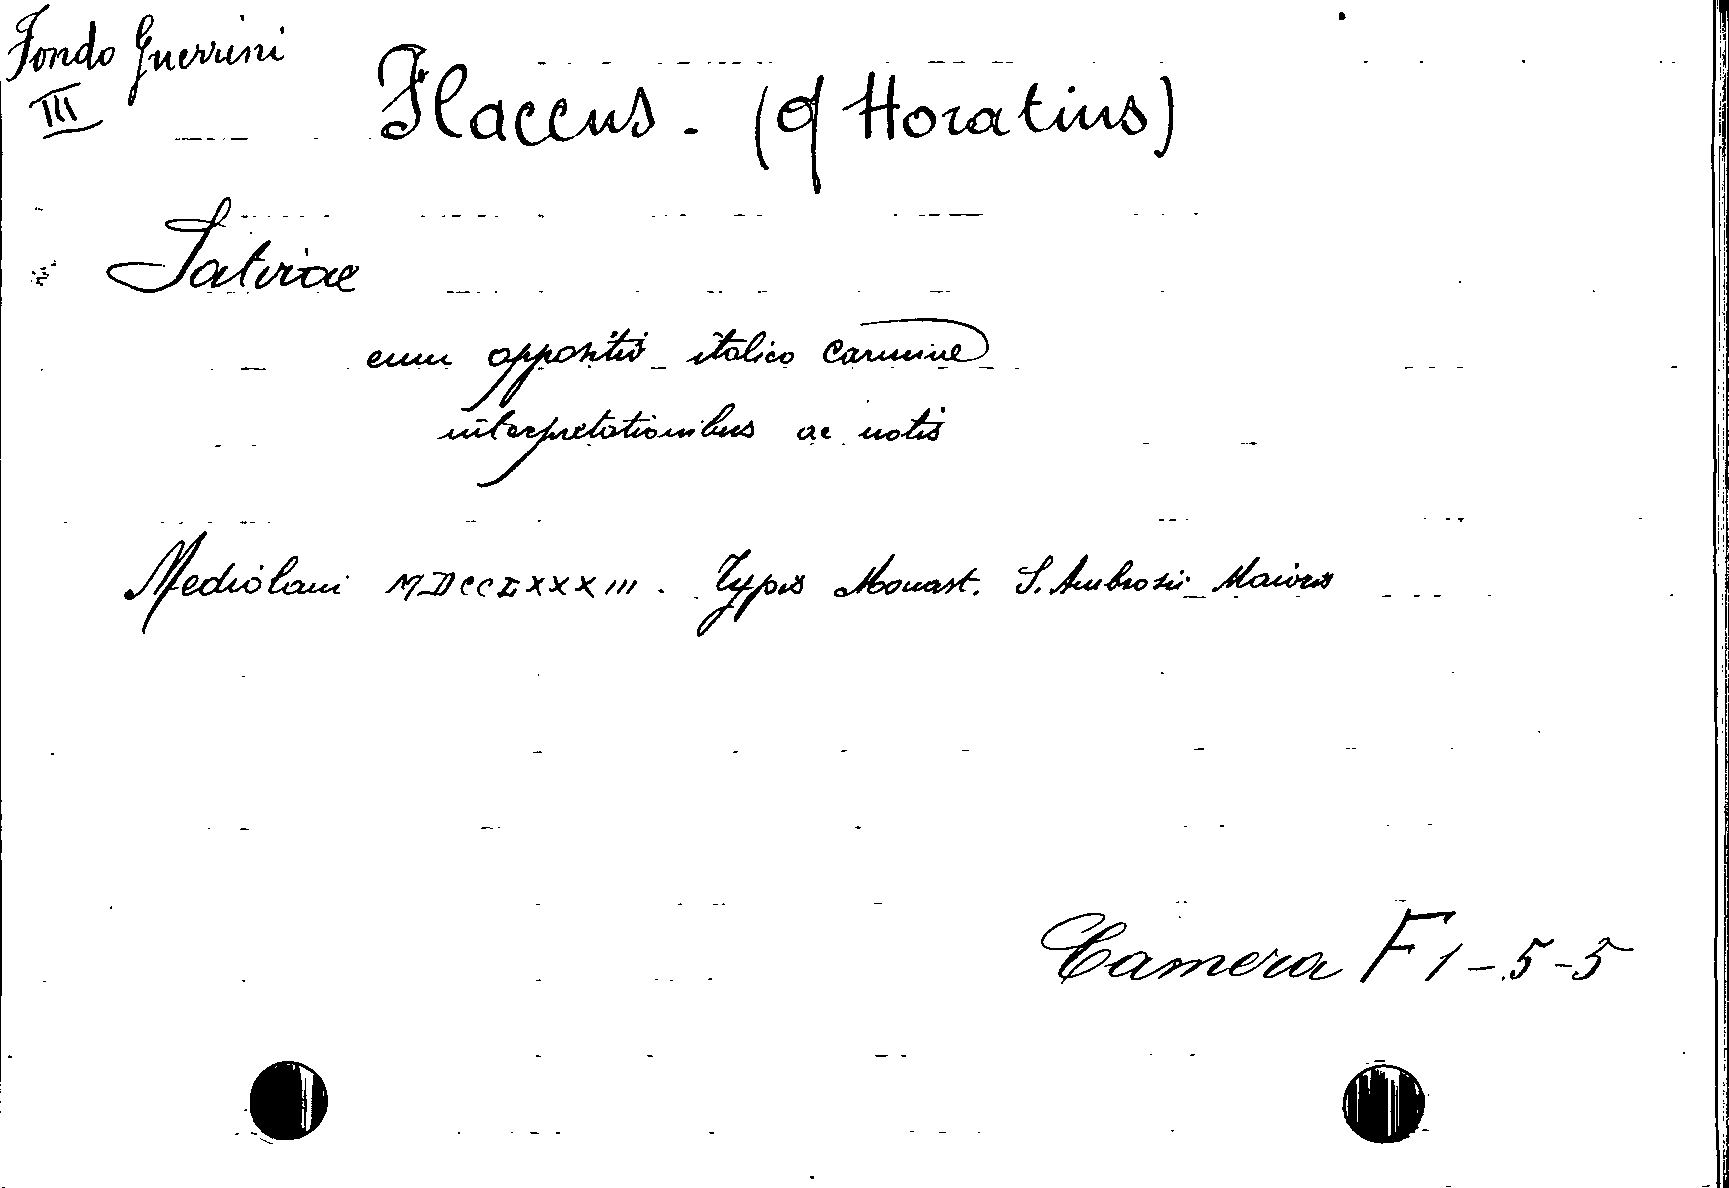 Fondo Guerrini
III
Flaccus. (Q Horatius)
Satirae
cum oppositis italico carmine
interpretationibus ac notis
Mediolani MDCCLXXXIII. Typis Monast. S. Ambrosii Maioris
Camera F 1-5-5